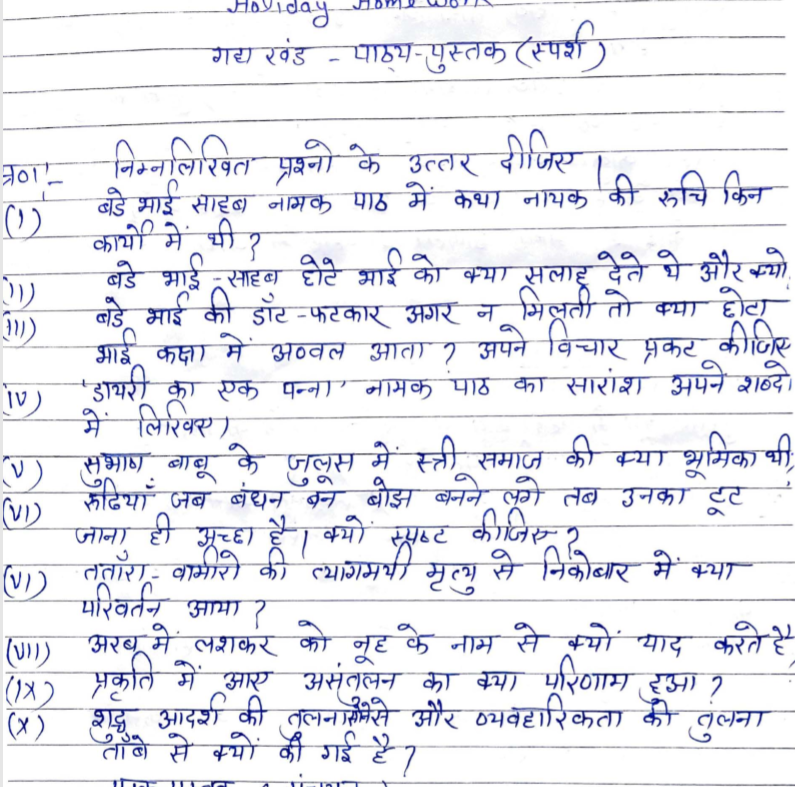 Holiday Home Work
गद्य खंड - पाठ्य-पुस्तक (स्पर्श)
प्र०1- निम्नलिखित प्रश्नो के उत्तर दीजिए।
(i) बडे भाई साहब नामक पाठ में कथा नायक की रुचि किन
कार्यो में थी ?
ii) बडे भाई-साहब छोटे भाई को क्या सलाह देते थे और क्यो
iii) बडे भाई की डाँट-फटकार अगर न मिलती तो क्या छोटा
भाई कक्षा में अव्वल आता ? अपने विचार प्रकट कीजिए
iv) 'डायरी का एक पन्ना' नामक पाठ का सारांश अपने शब्दो
में लिखिए।
(v) सुभाष बाबू के जुलूस में स्त्री समाज की क्या भूमिका थी
(vi) रूढियाँ जब बंधन बन बोझ बनने लगे तब उनका टूट
जाना ही अच्छा है। क्यों स्पष्ट कीजिए ?
(vi) तताँरा-वामीरो की त्यागमयी मृत्यु से निकोबार में क्या
परिवर्तन आया ?
(viii) अरब में लशकर को नूह के नाम से क्यों याद करते है
(ix) प्रकृति में आए असंतुलन का क्या परिणाम हुआ ?
(x) शुद्ध आदर्श की तुलना सोने से और व्यवहारिकता की तुलना
ताँबे से क्यों की गई है ?